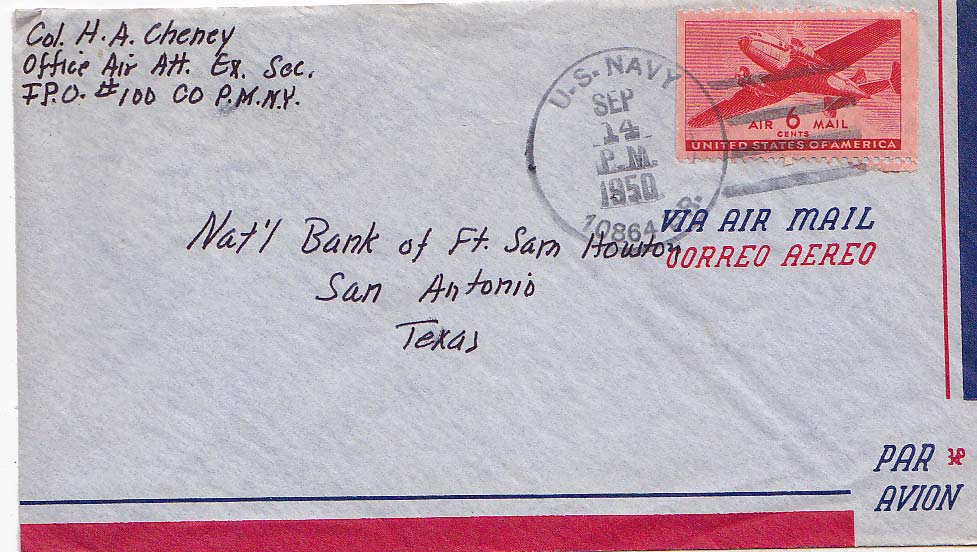 Col. H. A. Cheney
Office Air Att. Ex. Sec.
F.P.O. #100 CO P.M.N.Y.
U.S. NAVY
SEP
14
P.M.
1950
10864 BR.
AIR 6 MAIL
CENTS
UNITED STATES OF AMERICA
VIA AIR MAIL
CORREO AEREO
Nat'l Bank of Ft. Sam Houston
San Antonio
Texas
PAR
AVION